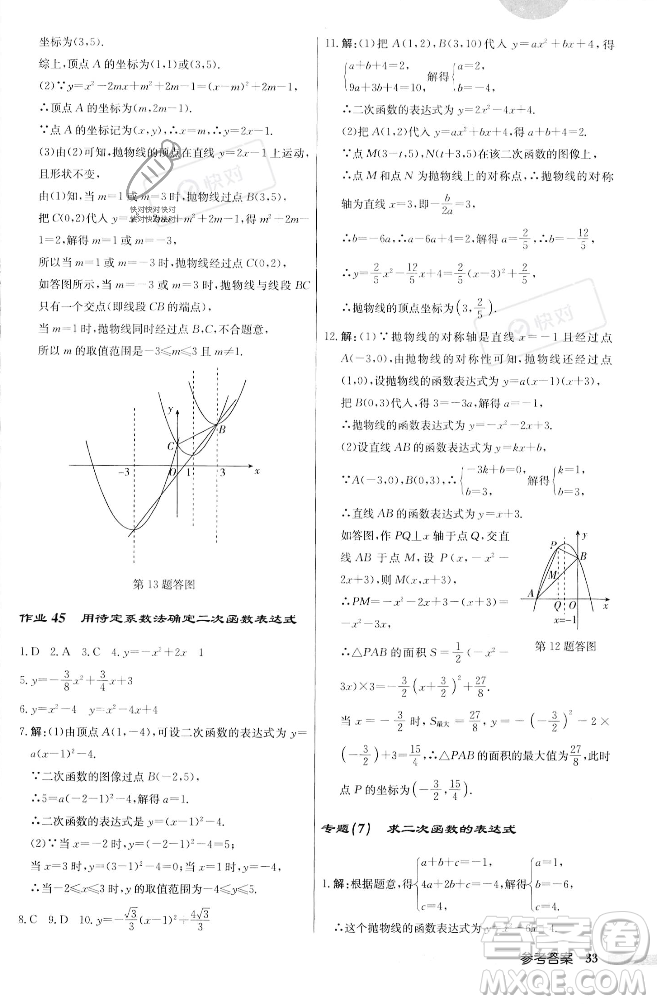 坐标为(3,5).
综上,顶点 A 的坐标为(3,5).
(2)∵y=x²-2mx+m²+2m-1=(x-m)²+2m-1,
∴顶点 A 的坐标为(m,2m-1).
∵点 A 的坐标记为(x,y),∴x=m,∴y=2x-1.
(3)由(2)可知,抛物线的顶点在直线 y=2x-1 上运动,
且形状不变,
由(1)知,当 m=1 或 m=3 时,抛物线过点 B(3,5).
把 C(0,2)代入 y=x²-2mx+m²+2m-1,得 m²+2m-
1=2,解得 m=1 或 m=-3.
∴当 m=1 或 m=-3 时,抛物线经过点 C(0,2).
如答图所示,当 m=-3 或 3 时,抛物线与线段 BC
只有一个交点(即线段 CB 的端点),
当 m=1 时,抛物线同时经过点 B,C,不合题意,
所以 m 的取值范围是-3≤m≤3 且 m≠1.
y
B
C
-3
O
1
3
x
第 13 题答图
作业 45 用待定系数法确定二次函数表达式
1.D 2.A 3.C 4.y=-x²+2x 1
5.y=-3/8x²+3/4x+3
6.y=x²-4 y=-x²+4
7.解:(1)由顶点 A(1,-4),可设二次函数的表达式为 y=
a(x-1)²-4.
∵二次函数的图像过点 B(-2,5),
∴5=a(-2-1)²-4,解得 a=1.
∴二次函数的表达式是 y=(x-1)²-4.
(2)∵当 x=-2 时,y=5;当 x=1 时,y=-4;
当 x=3 时,y=0,
∴当-2<x<3 时,-4≤y<5.
8.C 9.D 10.y=-√3/3(x-1)²+4√3/3
11.解:(1)把 A(1,2),B(3,10)代入 y=ax²+bx+4,得
{a+b+4=2, 9a+3b+4=10, 解得{a=2, b=-4.
∴二次函数的表达式为 y=2x²-4x+4.
(2)把 A(1,2)代入 y=ax²+bx+4,得 a+b+4=2.
∵点 M(3-t,5),N(t+3,5)在该二次函数的图像上,
∴点 M,N 是抛物线上的对称点,∴抛物线的对称
轴为直线 x=3,即-b/2a=3,
∴b=-6a,∴a-6a+4=2,解得 a=2/5,
∴y=2/5x²-12/5x+4=2/5(x-3)²+2/5,
∴抛物线的顶点坐标为(3,2/5).
12.解:(1)∵抛物线的对称轴是直线 x=-1 且经过点
A(-3,0),由抛物线的对称性可知,抛物线还经过点
(1,0),设抛物线的函数表达式为 y=a(x-1)(x+3).
把 B(0,3)代入,得 3=-3a,解得 a=-1.
∴抛物线的函数表达式为 y=-x²-2x+3.
(2)设直线 AB 的函数表达式为 y=kx+b,
∵A(-3,0),B(0,3),∴{-3k+b=0, b=3, 解得{k=1, b=3,
∴直线 AB 的函数表达式为 y=x+3.
如答图,作 PQ⊥x 轴于点 Q,交直线
AB 于点 M,设 P(x,-x²-
2x+3),则 M(x,x+3),
∴PM=-x²-2x+3-(x+
3)=-x²-3x.
∴△PAB 的面积 S=1/2(-x²-
3x)×3=-3/2(x+3/2)²+27/8.
当 x=-3/2 时,S最大=27/8,y=-(-3/2)²-2×
(-3/2)+3=15/4,∴△PAB 的面积的最大值为27/8,此时
点 P 的坐标为(-3/2,15/4).
y
P
B
M
A
Q
O
x
x=-1
第 12 题答图
专题(7) 求二次函数的表达式
1.解:根据题意,得{a+b+c=-1, 4a+2b+c=-4, c=4, 解得{a=1, b=-6, c=4,
∴这个抛物线的函数表达式为 y=x²-6x+4.
参考答案 33
快对
快对
答案圈
MXQE.COM